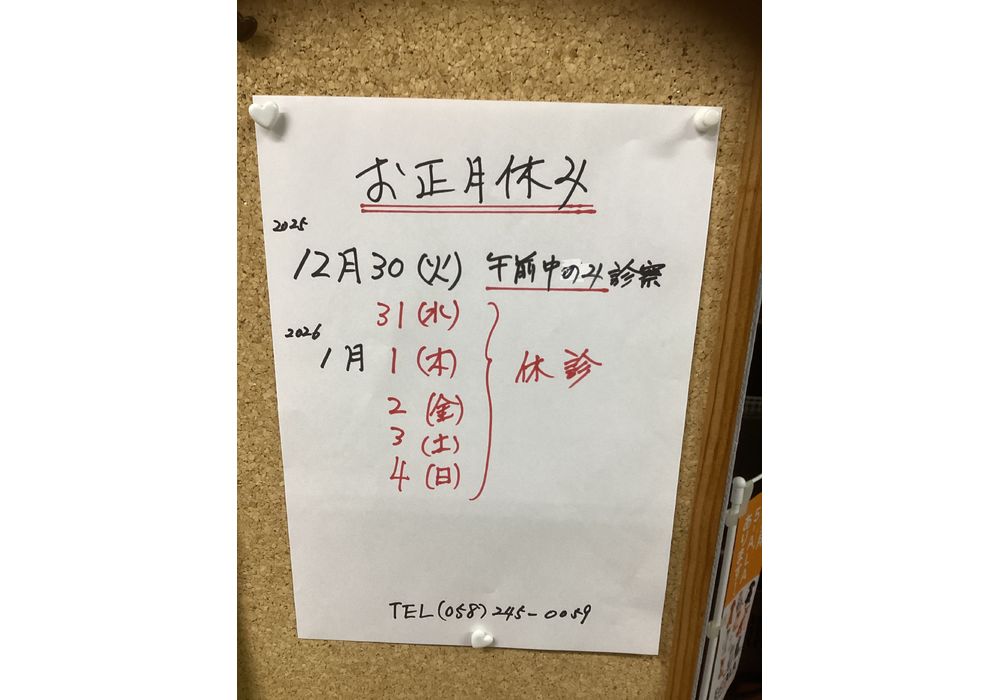 お正月休み
2025
12月30(火) 午前中のみ診察
31(水)
2026
1月 1(木)
休診
2(金)
3(土)
4(日)
TEL(058)245-0059